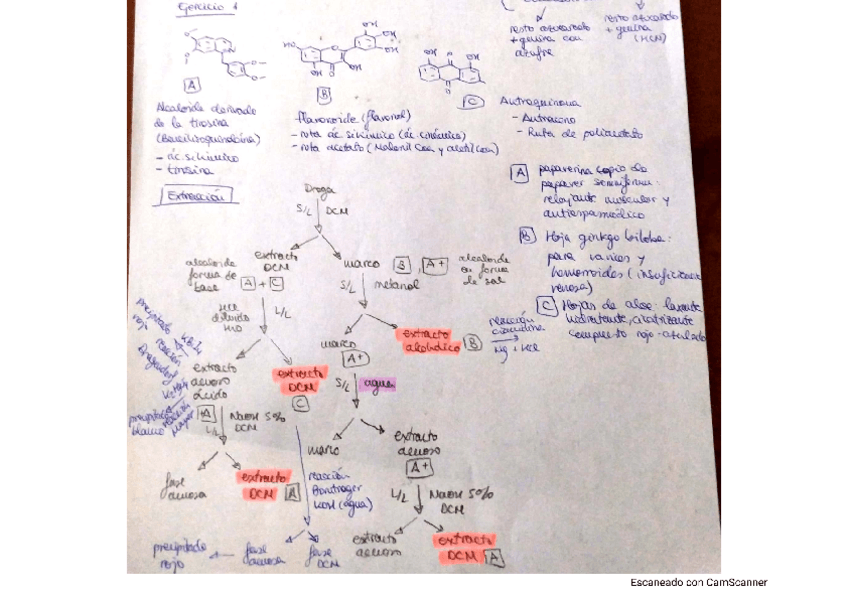 Ejercicio 1
resto azucarado
+ genina con
azufre
resto azucarado
+ genina
(HCN)
A
B
C
Alcaloide derivado
de la tirosina
(Bencilisoquinoleina)
- ác. sikimico
- tirosina
flavonoide (flavonol)
- ruta ác. sikimico (ác. cinámico)
- ruta acetato (Malonil CoA y acetil CoA)
Antraquinona
- Antraceno
- Ruta de poliacetato
Extracción
Droga
S/L DCM
A papaverina opio de
papaver somniferum:
relajante muscular y
antiespasmódico
B Hoja ginkgo biloba:
para varices y
hemorroides (insuficiencia
venosa)
C Hojas de aloe: laxante
hidratante, cicatrizante
compuesto rojo
alcaloide
forma de
base
extracto
DCM
A + C
marco B, A+
alcaloide
en forma
de sal
S/L metanol
HCl
diluido
H2O
L/L
marco
A+
extracto
alcohólico B
reacción
cianidina
Mg + HCl
precipitado
rojo
reacción
Dragendorff
extracto
acuoso
ácido
A
extracto
DCM
C
S/L agua
precipitado
blanco
reacción
Mayer
L/L
NaOH 5%
DCM
marco
extracto
acuoso
A+
fase
acuosa
extracto
DCM A
reacción
Borntrager
KOH (agua)
L/L NaOH 5%
DCM
precipitado
rojo
fase
acuosa
fase
DCM
extracto
acuoso
extracto
DCM A
Escaneado con CamScanner